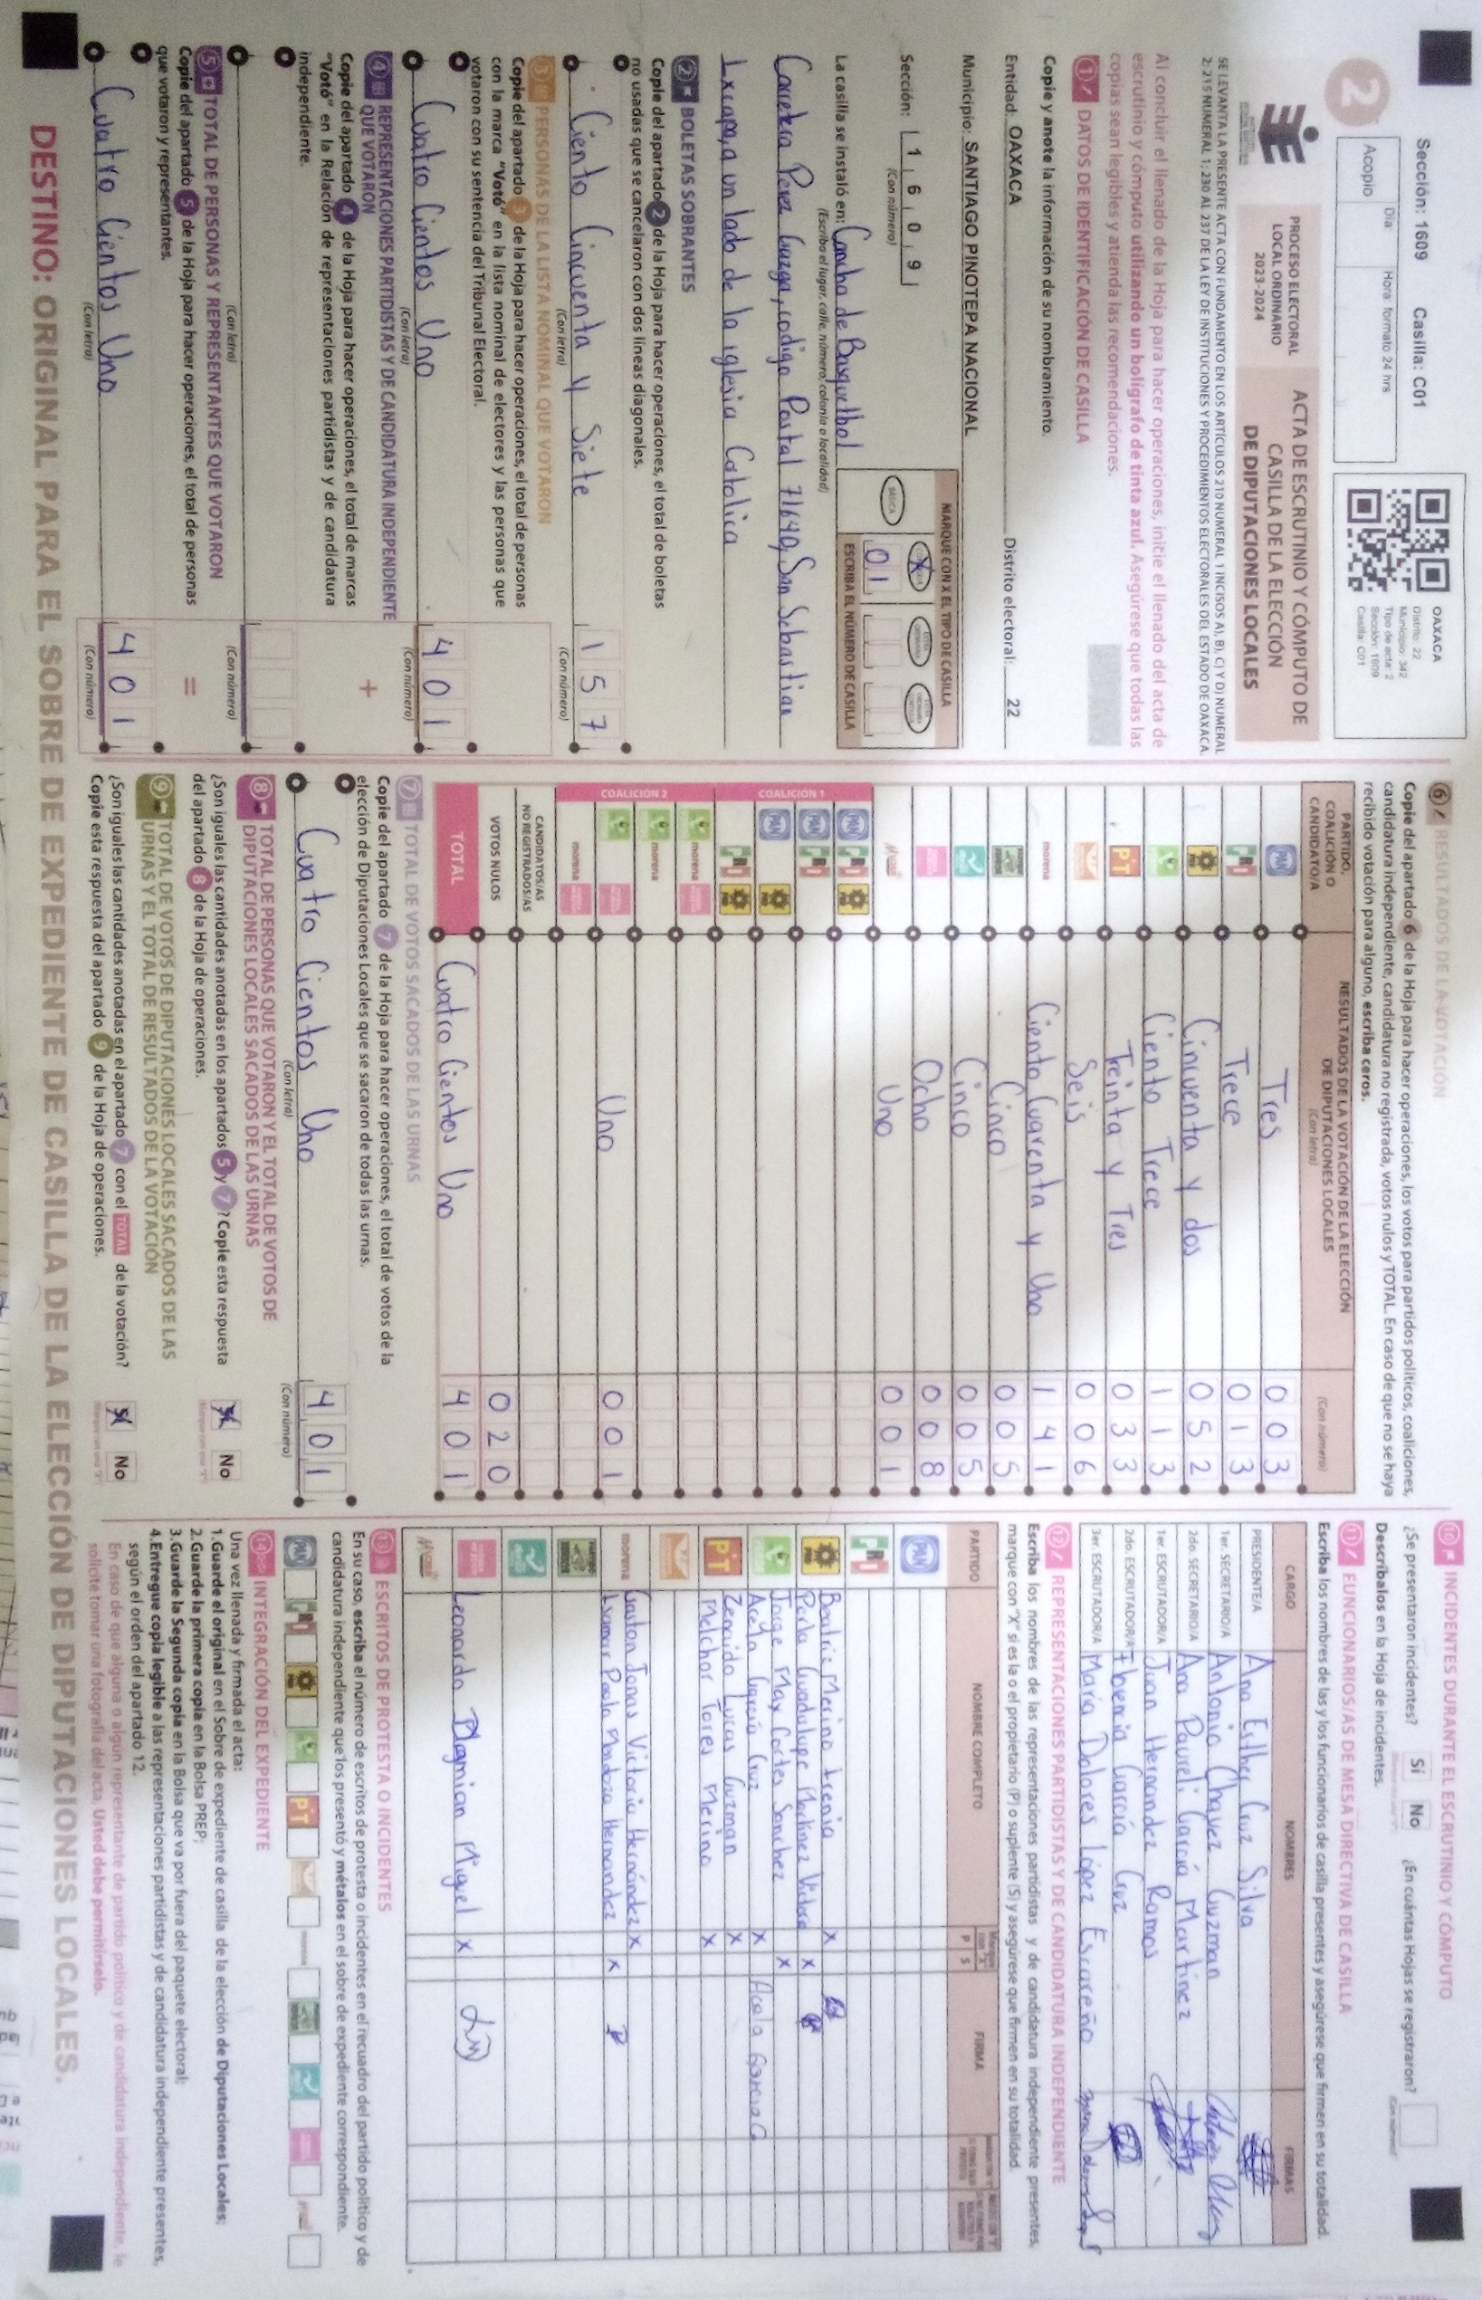 Sección: 1609 Casilla: C01
2
Acopio
Día Hora: formato 24 hrs
OAXACA
Distrito: 22
Municipio: 342
Tipo de acta: 2
Sección: 1609
Casilla: C01
PROCESO ELECTORAL
LOCAL ORDINARIO
2023-2024
ACTA DE ESCRUTINIO Y CÓMPUTO DE
CASILLA DE LA ELECCIÓN
DE DIPUTACIONES LOCALES
SE LEVANTA LA PRESENTE ACTA CON FUNDAMENTO EN LOS ARTÍCULOS 210 NUMERAL 1 INCISOS A), B), C) Y D) NUMERAL
2; 215 NUMERAL 1; 230 AL 237 DE LA LEY DE INSTITUCIONES Y PROCEDIMIENTOS ELECTORALES DEL ESTADO DE OAXACA.
Al concluir el llenado de la Hoja para hacer operaciones, inicie el llenado del acta de
escrutinio y cómputo utilizando un bolígrafo de tinta azul. Asegúrese que todas las
copias sean legibles y atienda las recomendaciones.
1 DATOS DE IDENTIFICACIÓN DE CASILLA
Copie y anote la información de su nombramiento.
Entidad: OAXACA Distrito electoral: 22
Municipio: SANTIAGO PINOTEPA NACIONAL
Sección: 1 6 0 9
(Con número)
MARQUE CON X EL TIPO DE CASILLA
BÁSICA
X
ESCRIBA EL NÚMERO DE CASILLA
0 1
La casilla se instaló en: Cancha de Basquetbol
(Escriba el lugar, calle, número, colonia o localidad)
Carretera Perez Gazga, codigo Postal 71640, San Sebastian
Ixcapa, a un lado de la iglesia Catolica
2 BOLETAS SOBRANTES
Copie del apartado 2 de la Hoja para hacer operaciones, el total de boletas
no usadas que se cancelaron con dos líneas diagonales.
Ciento Cincuenta y Siete 1 5 7
(Con letra) (Con número)
3 PERSONAS DE LA LISTA NOMINAL QUE VOTARON
Copie del apartado 3 de la Hoja para hacer operaciones, el total de personas
con la marca "Votó" en la lista nominal de electores y las personas que
votaron con su sentencia del Tribunal Electoral.
Cuatro Cientos Uno 4 0 1
(Con letra) (Con número)
4 REPRESENTACIONES PARTIDISTAS Y DE CANDIDATURA INDEPENDIENTE
QUE VOTARON
+
Copie del apartado 4 de la Hoja para hacer operaciones, el total de marcas
"Votó" en la Relación de representaciones partidistas y de candidatura
independiente.
(Con letra) (Con número)
5 TOTAL DE PERSONAS Y REPRESENTANTES QUE VOTARON
=
Copie del apartado 5 de la Hoja para hacer operaciones, el total de personas
que votaron y representantes.
Cuatro Cientos Uno 4 0 1
(Con letra) (Con número)
6 RESULTADOS DE LA VOTACIÓN
Copie del apartado 6 de la Hoja para hacer operaciones, los votos para partidos políticos, coaliciones,
candidatura independiente, candidatura no registrada, votos nulos y TOTAL. En caso de que no se haya
recibido votación para alguno, escriba ceros.
PARTIDO,
COALICIÓN O
CANDIDATO/A
RESULTADOS DE LA VOTACIÓN DE LA ELECCIÓN
DE DIPUTACIONES LOCALES
(Con letra) (Con número)
PAN Tres 0 0 3
PRI Trece 0 1 3
PRD Cincuenta y dos 0 5 2
Ciento Trece 1 1 3
PT Treinta y Tres 0 3 3
Seis 0 0 6
morena Ciento Cuarenta y Uno 1 4 1
Cinco 0 0 5
Cinco 0 0 5
Ocho 0 0 8
Uno 0 0 1
COALICIÓN 1
PAN PRI PRD
PAN PRI
PAN PRD
PRI PRD
COALICIÓN 2
morena
morena
Uno 0 0 1
morena
CANDIDATOS/AS
NO REGISTRADOS/AS
VOTOS NULOS 0 2 0
TOTAL Cuatro Cientos Uno 4 0 1
7 TOTAL DE VOTOS SACADOS DE LAS URNAS
Copie del apartado 7 de la Hoja para hacer operaciones, el total de votos de la
elección de Diputaciones Locales que se sacaron de todas las urnas.
Cuatro Cientos Uno 4 0 1
(Con letra) (Con número)
8 TOTAL DE PERSONAS QUE VOTARON Y EL TOTAL DE VOTOS DE
DIPUTACIONES LOCALES SACADOS DE LAS URNAS
¿Son iguales las cantidades anotadas en los apartados 5 y 7? Copie esta respuesta
del apartado 8 de la Hoja de operaciones.
Sí No
9 TOTAL DE VOTOS DE DIPUTACIONES LOCALES SACADOS DE LAS
URNAS Y EL TOTAL DE RESULTADOS DE LA VOTACIÓN
¿Son iguales las cantidades anotadas en el apartado 7 con el TOTAL de la votación?
Copie esta respuesta del apartado 9 de la Hoja de operaciones.
Sí No
10 INCIDENTES DURANTE EL ESCRUTINIO Y CÓMPUTO
¿Se presentaron incidentes? Sí No ¿En cuántas Hojas se registraron?
Descríbalos en la Hoja de incidentes.
11 FUNCIONARIOS/AS DE MESA DIRECTIVA DE CASILLA
Escriba los nombres de las y los funcionarios de casilla presentes y asegúrese que firmen en su totalidad.
CARGO NOMBRES FIRMAS
PRESIDENTE/A Ana Esther Cruz Silva
1er. SECRETARIO/A Antonio Chavez Guzman
2do. SECRETARIO/A Ana Paureli García Martinez
1er. ESCRUTADOR/A Juan Hernandez Ramos
2do. ESCRUTADOR/A Ifbenia García Cruz
3er. ESCRUTADOR/A Maria Dolores López Escareño
12 REPRESENTACIONES PARTIDISTAS Y DE CANDIDATURA INDEPENDIENTE
Escriba los nombres de las representaciones partidistas y de candidatura independiente presentes,
marque con "X" si es la o el propietario (P) o suplente (S) y asegúrese que firmen en su totalidad.
PARTIDO NOMBRE COMPLETO P S FIRMA
PAN
PRI
PRD Beatriz Merino X
Perla Guadalupe Martinez X
Jorge May Cortes Sanchez X
Acela García Cruz X Acela Garcia C
PT Zenaido Lucas Guzman X
Melchor Torres Merino X
morena Gaston Jonas Victoria Hernández X
Lisamar Paola Mendoza Hernandez X
Leonardo Damian Miguel X
13 ESCRITOS DE PROTESTA O INCIDENTES
En su caso, escriba el número de escritos de protesta o incidentes en el recuadro del partido político y de
candidatura independiente que los presentó y métalos en el sobre de expediente correspondiente.
PAN PRI PRD PT
14 INTEGRACIÓN DEL EXPEDIENTE
Una vez llenada y firmada el acta:
1.Guarde el original en el Sobre de expediente de casilla de la elección de Diputaciones Locales;
2.Guarde la primera copia en la Bolsa PREP;
3.Guarde la Segunda copia en la Bolsa que va por fuera del paquete electoral;
4.Entregue copia legible a las representaciones partidistas y de candidatura independiente presentes,
según el orden del apartado 12.
En caso de que alguna o algun representante de partido político y de candidatura independiente, le
solicite tomar una fotografía del acta. Usted debe permitírselo.
DESTINO: ORIGINAL PARA EL SOBRE DE EXPEDIENTE DE CASILLA DE LA ELECCIÓN DE DIPUTACIONES LOCALES.